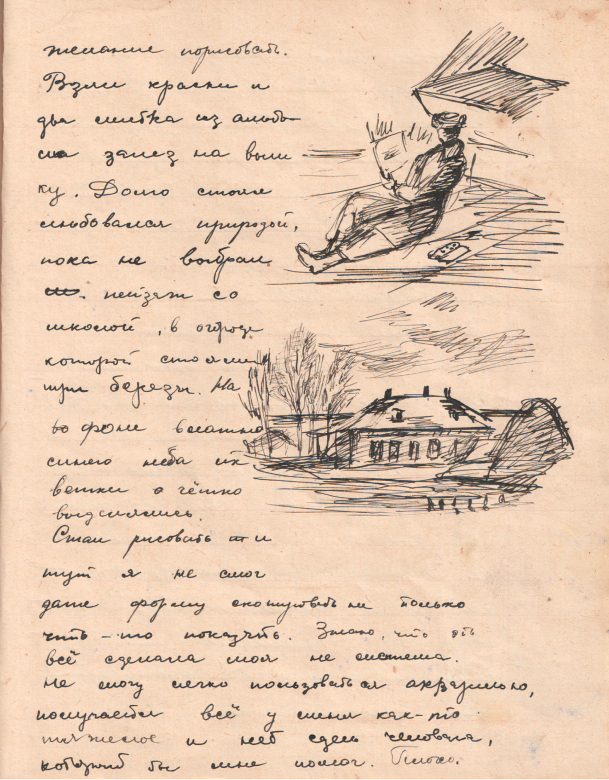 желание порисовать.
Взяли краски и
два листка из альбо
ма залез на выш
ку. Долго стоял
любовался природой,
пока не выбрал
пейзаж со
школой, в огороде
которой стояли
три березы. На
фоне
синего неба их
ветки чётко
выделялись.
Стал рисовать и
тут я не смог
даже форму скопировать не только
что-то покрасить. Знаю, что
всё сделала моя не система.
Не могу легко пользоваться акварелью,
получается всё у меня как-то
тяжелое и нет здесь человека,
который бы мне помог. Плохо.